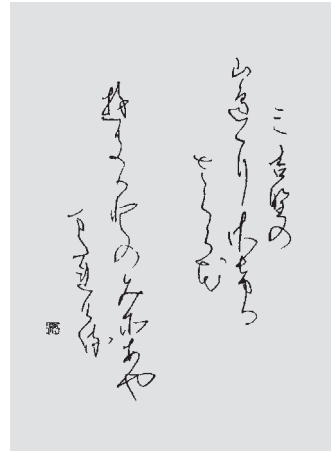 三吉野の
山邊にさける
さくら花
遊きかとのみ所あや
またれける